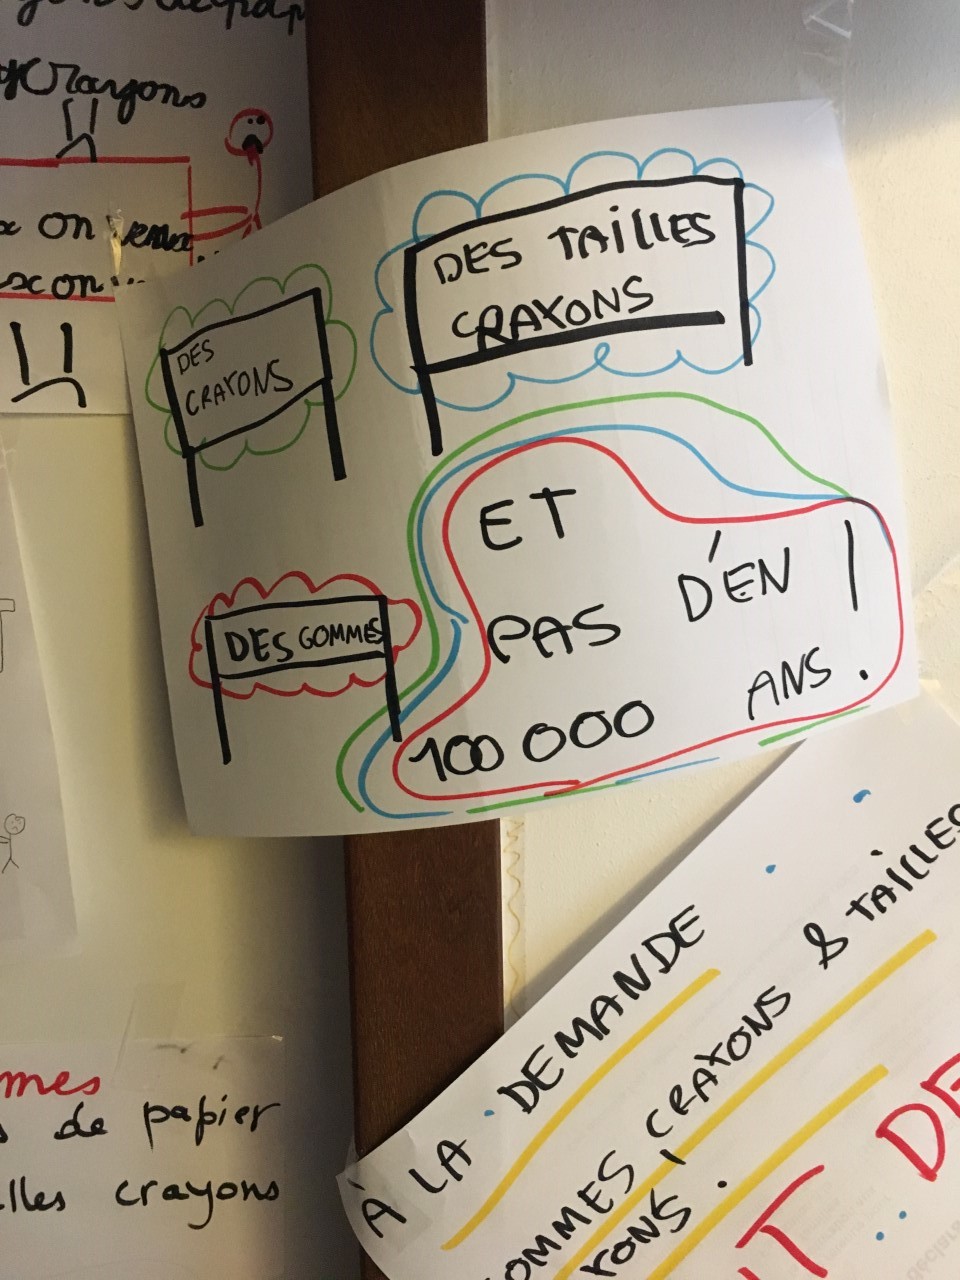 crayons
on
on
DES TAILLES
CRAYONS
DES
CRAYONS
ET
PAS D'EN !
100 000 ANS.
DES GOMMES
mes
de papier
lles crayons
À LA DEMANDE
OMMES, CRAYONS & TAILLES
YONS.
T DE